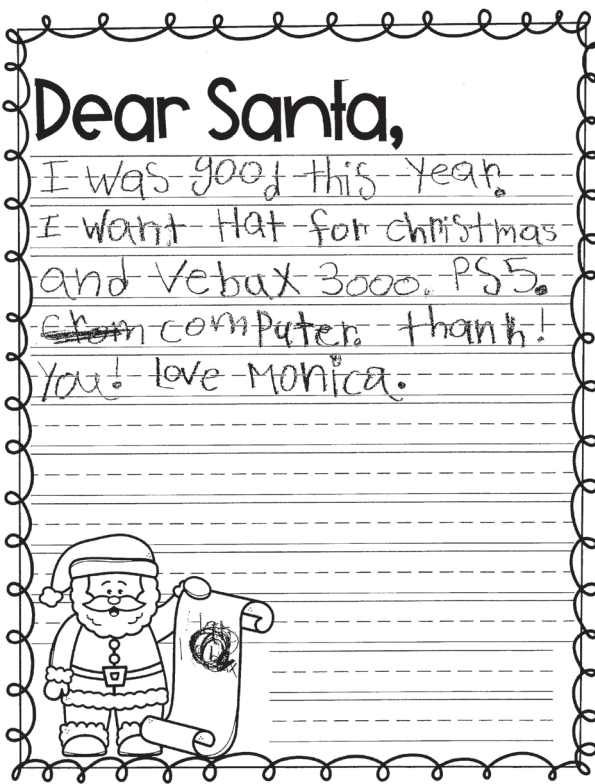 Dear Santa,
I was good this year.
I want Hat for christmas
and Vebux 3000. PS5.
computer. thank!
You! Love Monica.